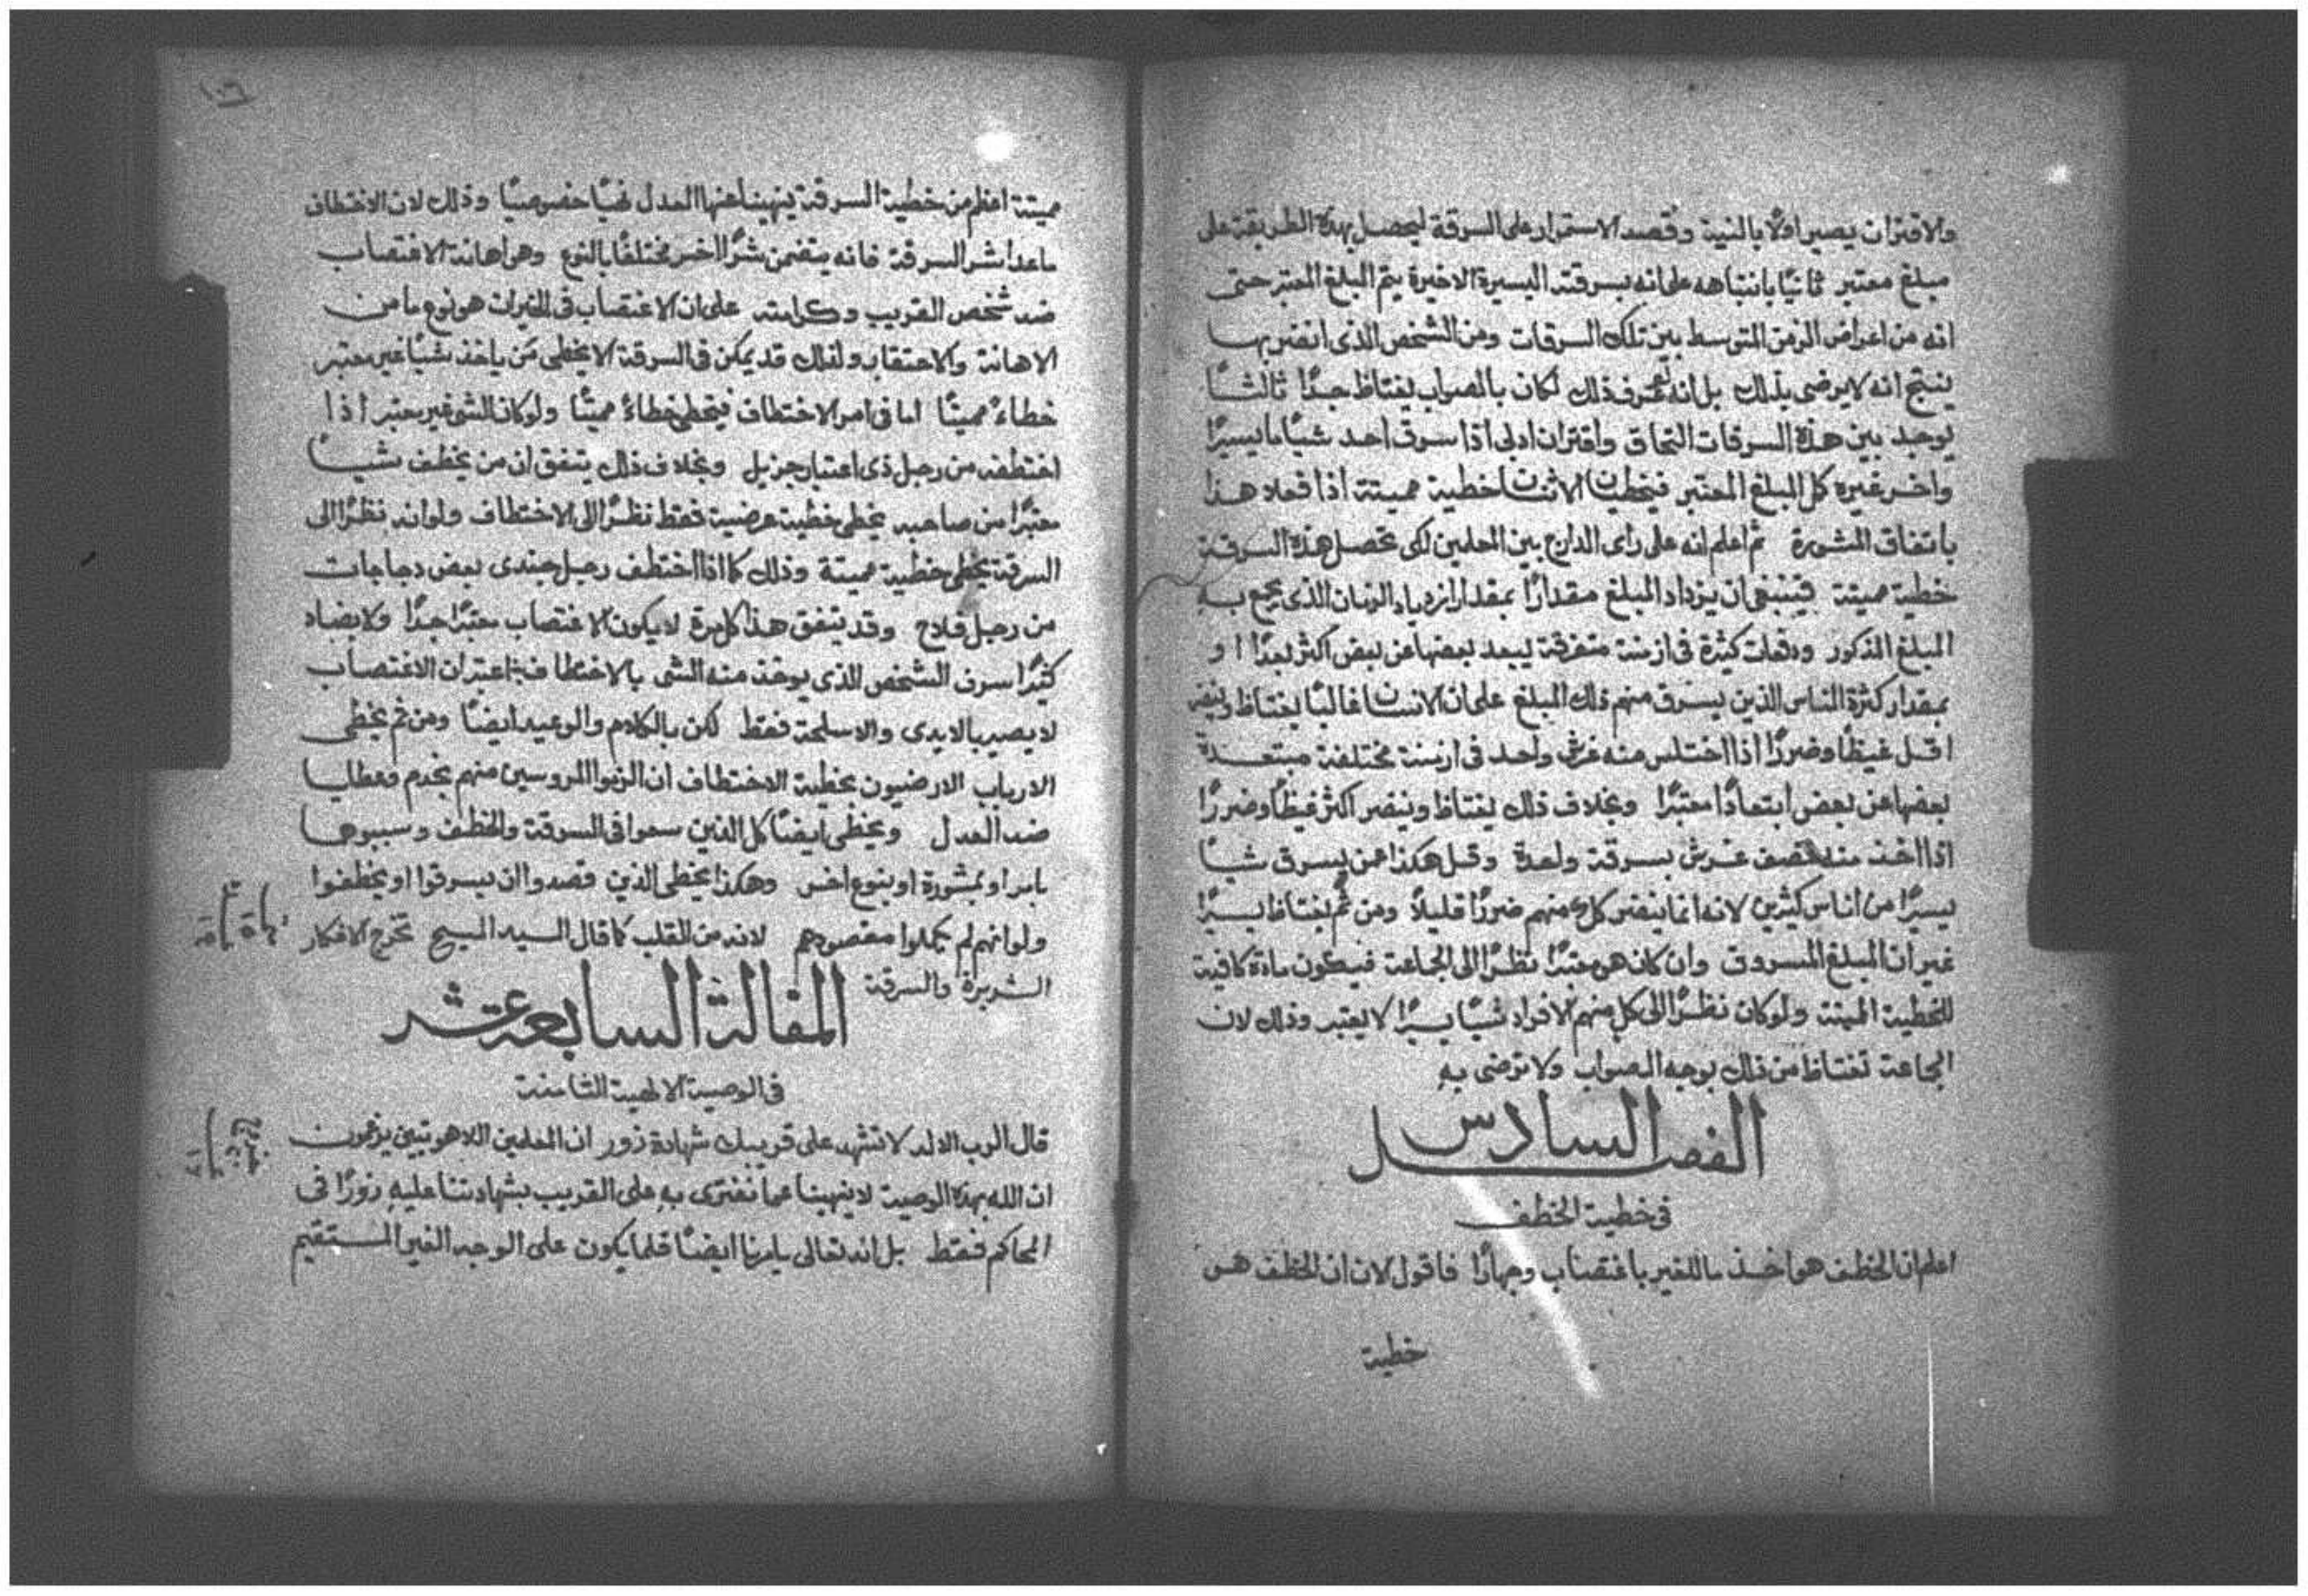 والاقتران يصير اولًا بالنية وقصد الاستمرار على السرقة ليحصل بهذه الطريقة على
مبلغ معتبر ثانيًا بانتباهه على انه بسرقته اليسيرة الاخيرة يتم المبلغ المعتبر حتى
انه من اعراض الزمن المتوسط بين تلك السرقات ومن الشخص الذى انضر بها
ينتج انه لا يرضى بذلك بل انه لو عرف ذلك لكان بالصواب يغتاظ جدًا ثالثًا
يوجد بين هذه السرقات التحاق واقتران ادبى اذا سرق احد شيًا ما يسيرًا
واخر غيره كل المبلغ المعتبر فيخطيان الاثنان خطية مميتة اذا فعلا هذا
باتفاق المشورة ثم اعلم انه على راى الدارج بين المعلمين لكى تحصل هذه السرقة
خطية مميتة فينبغى ان يزداد المبلغ مقدارًا بمقدار ازدياد الزمان الذى يجمع به
المبلغ المذكور ودفعات كثيرة فى ازمنة متفرقة يبعد بعضها عن بعض اكثر بعدًا او
بمقدار كثرة الناس الذين يسرق منهم ذلك المبلغ على ان الانسان غالبًا يغتاظ وينضر
اقل غيظًا وضررًا اذا اختلس منه غرش واحد فى ازمنة مختلفة مبتعدة
بعضها عن بعض ابتعادًا معتبرًا وبخلاف ذلك يغتاظ وينضر اكثر غيظًا وضررًا
اذا اخذ منه نصف غرش بسرقة واحدة وقل هكذا عمن يسرق شيًا
يسيرًا من اناس كثيرين لانه انما ينضر كل منهم ضررًا قليلًا ومن ثم يغتاظ يسيرًا
غير ان المبلغ المسروق وان كان هو معتبرًا نظرًا الى الجماعة فيكون مادة كافية
للخطية المميتة ولو كان نظرًا الى كل منهم الافراد شيًا يسيرًا لا يعتبر وذلك لان
الجماعة تغتاظ من ذلك بوجه الصواب ولا ترضى به
الفصل السادس
فى خطية الخطف
اعلم ان الخطف هو اخذ ما للغير باغتصاب وجهارًا فاقول الان ان الخطف هى
خطية
١٠٦
مميتة اعظم من خطية السرقة ينهينا عنها العدل نهيًا خصوصيًا وذلك لان الاختطاف
ماعدا شر السرقة فانه يتضمن شرًا اخر مختلفًا بالنوع وهو اهانة الاغتصاب
ضد شخص القريب وكرامته على ان الاغتصاب فى الخيرات هو نوع ما من
الاهانة والاحتقار ولذلك قد يمكن فى السرقة الا يخطى من ياخذ شيًا غير معتبر
خطاءً مميتًا اما فى امر الاختطاف فيخطى خطاءً مميتًا ولو كان الشى غير معتبر اذا
اختطفه من رجل ذى اعتبار جزيل وبخلاف ذلك يتفق ان من يخطف شيًا
معتبرًا من صاحبه يخطى خطية عرضية فقط نظرًا الى الاختطاف ولو انه نظرًا الى
السرقة يخطى خطية مميتة وذلك كما اذا اختطف رجل جندى بعض دجاجات
من رجل فلاح وقد يتفق هذا كل مرة لا يكون الاغتصاب معتبرًا جدًا ولا يضاد
كثيرًا سرف الشخص الذى يوخذ منه الشى بالاختطاف ثم اعتبر ان الاغتصاب
لا يصير بالايدى والاسلحة فقط لكن بالكلام والوعيد ايضًا ومن ثم يخطى
الارباب الارضيون بخطية الاختطاف ان الزموا المروسين منهم بخدم وعطايا
ضد العدل ويخطى ايضًا كل الذين سعوا فى السرقة والخطف وسببوها
بامر او بمشورة او بنوع اخر وهكذا يخطى الذين قصدوا ان يسرقوا او يخطفوا
ولو انهم لم يكملوا مقصودهم لانه من القلب كما قال السيد المسيح تخرج الافكار
الشريرة والسرقة
المقالة السابعة عشر
فى الوصية الالهية الثامنة
قال الرب الاله لا تشهد على قريبك شهادة زور ان المعلمين اللاهوتيين يزعمون
ان الله بهذه الوصية لا ينهينا عما نفترى به على القريب بشهادتنا عليه زورًا فى
المحاكم فقط بل انه تعالى يامرنا ايضًا قلما يكون على الوجه الغير المستقيم